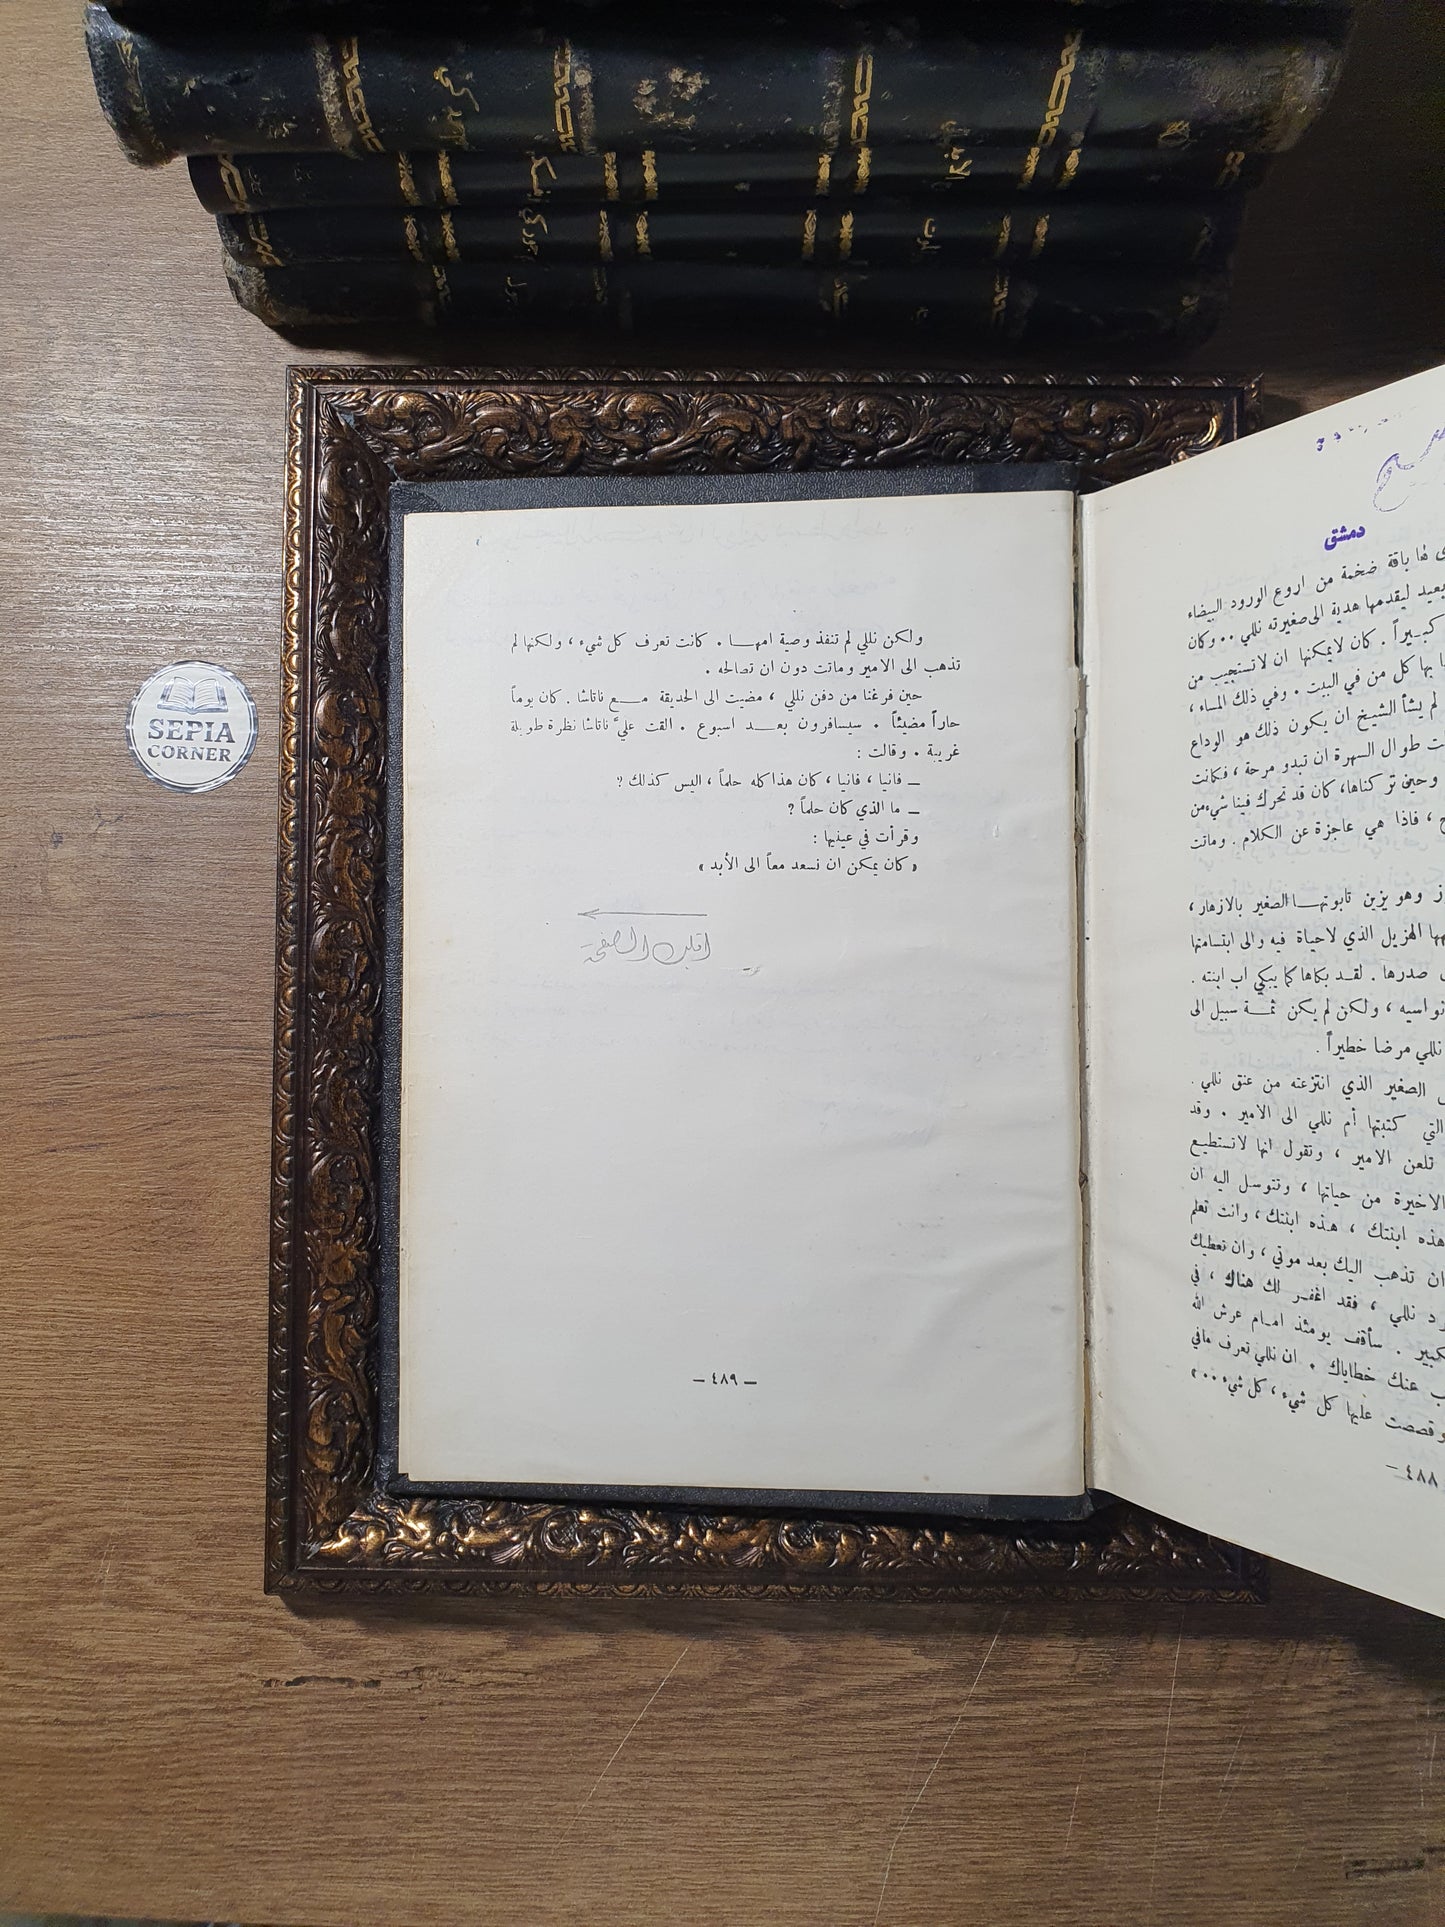 دمشق
ها باقة ضخمة من اروع الورود البيضاء
ليقدمها هدية الى صغيرته نللي .. وكان
كبيراً . كان لايمكنها ان لاتستجيب من
بها كل من في البيت . وفي ذلك المساء ،
لم يشأ الشيخ ان يكون ذلك هو الوداع
طوال السهرة ان تبدو مرحة ، فكانت
وحين تركناها، كان قد تحرك فينا شيء من
، فاذا هي عاجزة عن الكلام . وماتت
وهو يزين تابوتهـا الصغير بالازهار ،
الهزيل الذي لاحياة فيه والى ابتسامتها
صدرها . لقد بكاها كما يبكي اب ابنته .
نواسيه ، ولكن لم يكن ثمـة سبيل الى
نللي مرضا خطيراً .
الصغير الذي انتزعته من عنق نللي .
التي كتبتها أم نللي الى الامير . وقد
تلعن الامير ، وتقول انها لاتستطيع
الاخيرة من حياتها ، وتتوسل اليه ان
هذه ابنتك ، هذه ابنتك ، وانت تعلم
ان تذهب اليك بعد موتي ، وان تعطيك
نللي ، فقد اغفر لك هناك ، في
سأقف يومئذ امام عرش الله
عنك خطاياك . ان نللي تعرف مافي
وقصصت عليها كل شيء ، كل شيء .. »
٤٨٨ –
ولكن نللي لم تنفذ وصية امهـا . كانت تعرف كل شيء ، ولكنها لم
تذهب الى الامير وماتت دون ان تصالحه .
حين فرغنا من دفن نللي ، مضيت الى الحديقة مـع ناتاشا . كان يوماً
حاراً مضيئاً . سيسافرون بعـد اسبوع . القت عليَّ ناتاشا نظرة طويلة
غريبة . وقالت :
– فانيا ، فانيا ، كان هذا كله حلماً ، اليس كذلك ؟
– ما الذي كان حلماً ؟
وقرأت في عينيها :
« كان يمكن ان نسعد معاً الى الأبد »
اقلب الصفحة
– ٤٨٩ –
SEPIA
CORNER